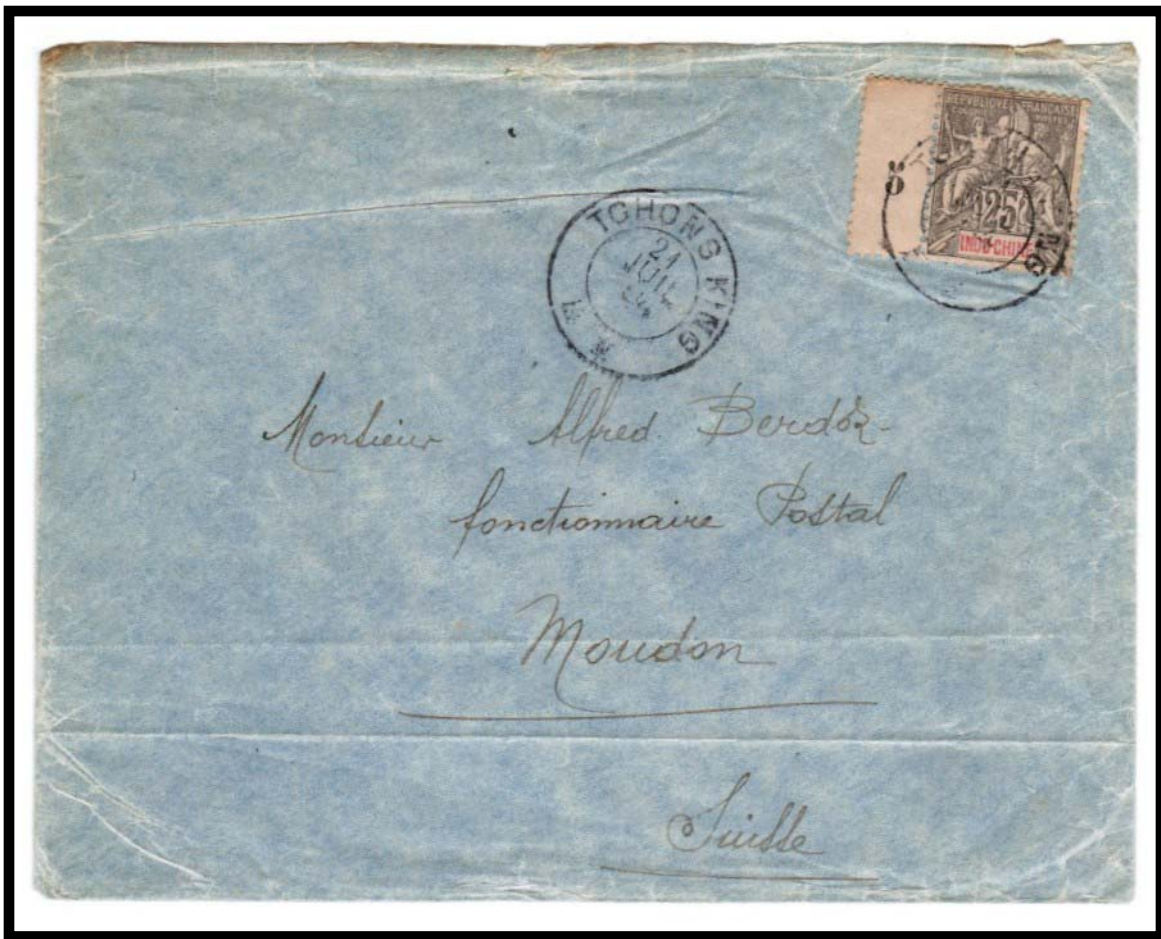 REPVBLIQVE FRANÇAISE
25
INDO-CHINE
5
TCHONG K'ING
21
JUIL
Monsieur Alfred Berdoz
fonctionnaire Postal
Moudon
Suisse